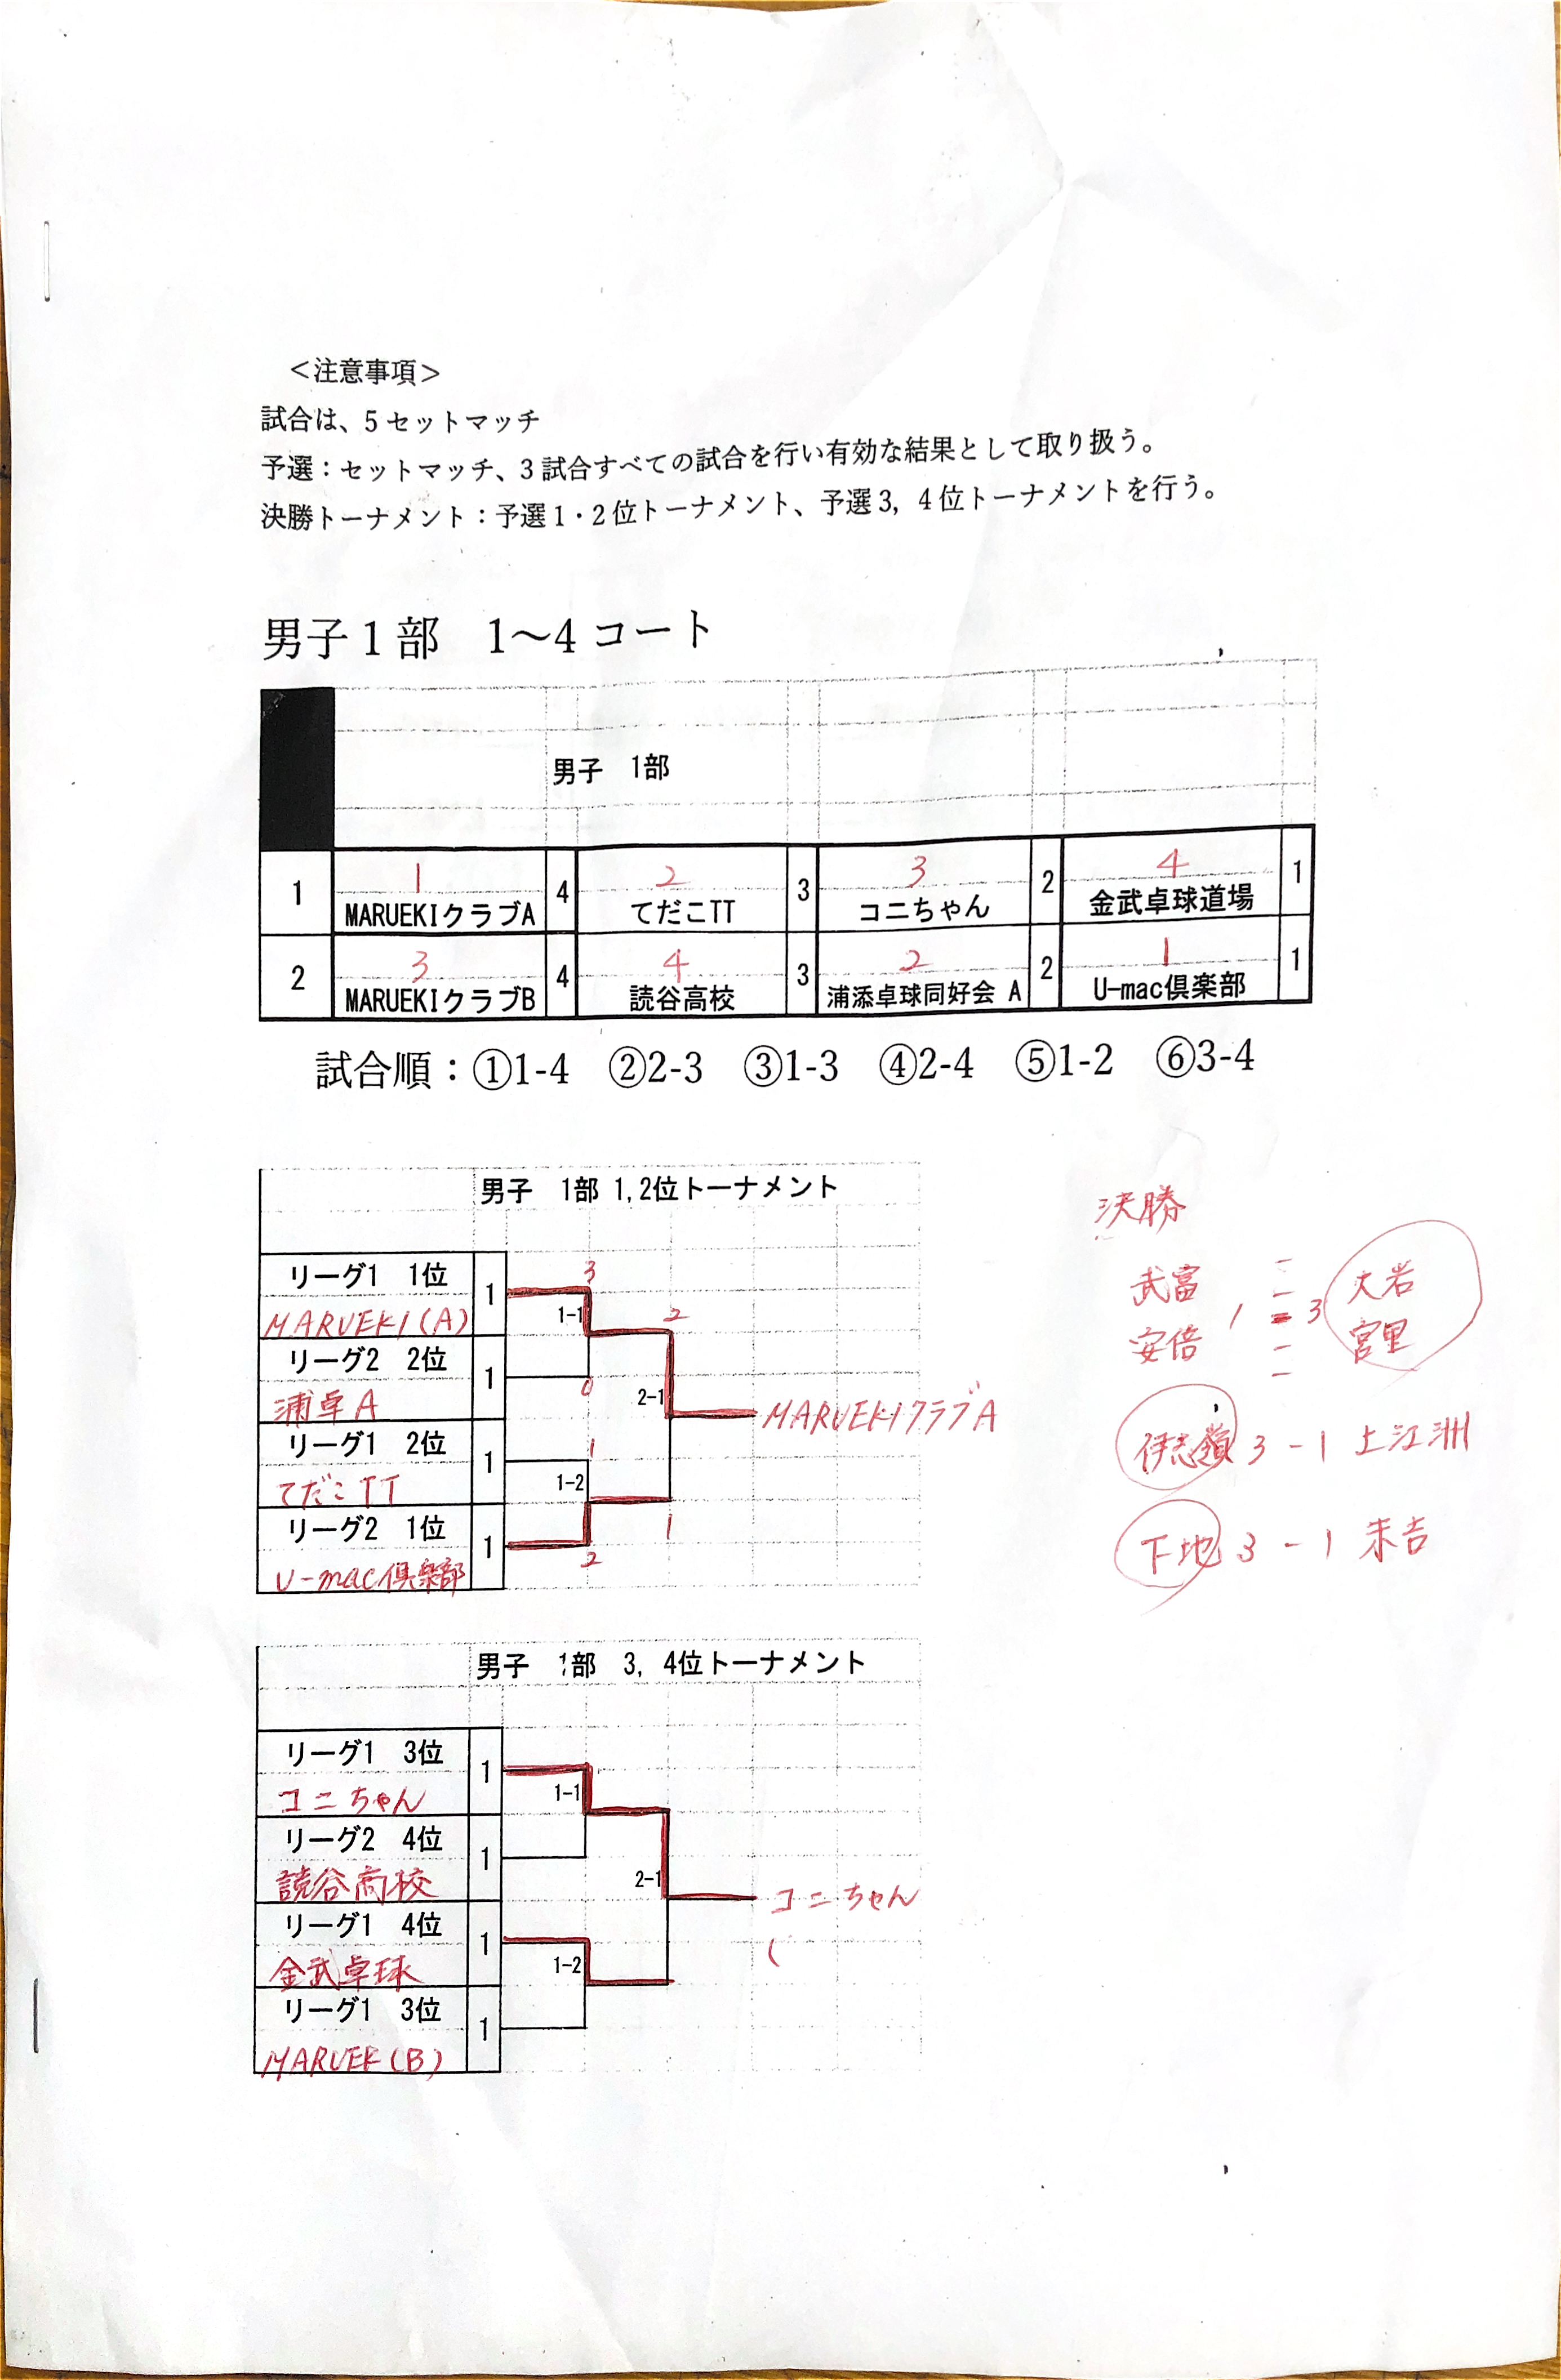 ＜注意事項＞
試合は、5セットマッチ
予選：セットマッチ、3試合すべての試合を行い有効な結果として取り扱う。
決勝トーナメント：予選1・2位トーナメント、予選3, 4位トーナメントを行う。
男子1部　1～4コート
男子　1部
1 2 3 4
1 MARUEKIクラブA 4 てだこTT 3 コニちゃん 2 金武卓球道場 1
3 4 2 1
2 MARUEKIクラブB 4 読谷高校 3 浦添卓球同好会 A 2 U-mac倶楽部 1
試合順：①1-4　②2-3　③1-3　④2-4　⑤1-2　⑥3-4
男子　1部 1, 2位トーナメント
リーグ1　1位 1 3
MARUEKI(A) 1-1 2
リーグ2　2位 1 0
浦卓A 2-1 MARUEKIクラブA
リーグ1　2位 1 1
てだこTT 1-2
リーグ2　1位 1 2 1
U-mac倶楽部
決勝
武富 大岩
1 = 3
安倍 宮里
伊志嶺 3 - 1 上江洲
下地 3 - 1 末吉
男子　1部　3, 4位トーナメント
リーグ1　3位 1
コニちゃん 1-1
リーグ2　4位 1
読谷高校 2-1 コニちゃん
リーグ1　4位 1
金武卓球 1-2
リーグ1　3位 1
MARUEK(B)